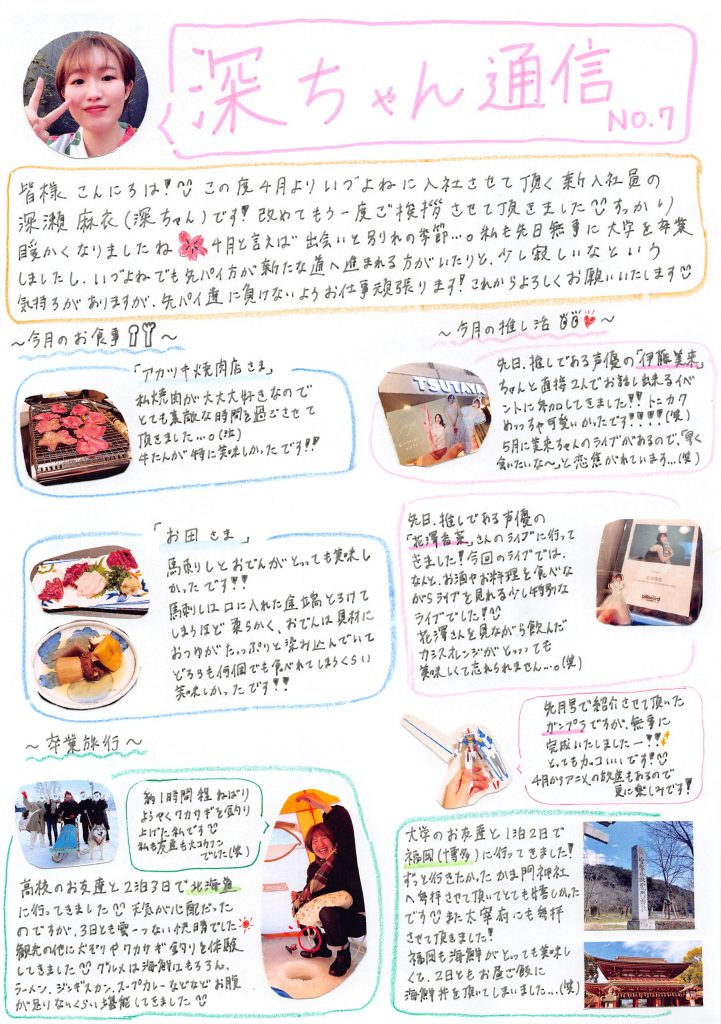 深ちゃん通信
NO.7
皆様 こんにちは! この度4月よりいづよねに入社させて頂く新入社員の
深瀬 麻衣(深ちゃん)です! 改めてもう一度ご挨拶させて頂きました すっかり
暖かくなりましたね 4月と言えば出会いと別れの季節…。私も先日無事に大学を卒業
しましたし、いづよねでも先パイ方が新たな道へ進まれる方がいたりと、少し寂しいなという
気持ちがありますが、先パイ達に負けないようお仕事頑張ります! これからよろしくお願いいたします
~今月のお食事
「アカツキ焼肉店さま」
私焼肉が大大大好きなので
とても素敵な時間を過ごさせて
頂きました…。(泣)
牛たんが特に美味しかったです!!
「お田さま」
馬刺しとおでんがとっっても美味し
かったです!!
馬刺しは口に入れた途端とろけて
しまうほど柔らかく、おでんは具材に
おつゆがたっっぷりと染み込んでいて
どちらも何個でも食べれてしまうくらい
美味しかったです!!
~今月の推し活
先日、推しである声優の「伊藤美来」
ちゃんと直接2人でお話し出来るイベ
ントに参加してきました!! トニカク
めっっちゃ可愛いかったです!!!!(笑)
5月に美来ちゃんのライブがあるので、「早く
会いたいな~」と恋焦がれています…(笑)
TSUTAYA
先日、推しである声優の
「花澤香菜」さんのライブに行って
きました! 今回のライブでは、
なんと、お酒やお料理を食べな
がらライブを見れる少し特別な
ライブでした!
花澤さんを見ながら飲んだ
カシスオレンジがとっっっても
美味しくて忘れられません…。(笑)
billboard
先月号で紹介させて頂いた
ガンプラですが、無事に
完成いたしましたー!!
とってもカッコいいです!
4月からアニメの放送もあるので
更に楽しみです!
~卒業旅行~
約1時間程ねばり
ようやくワカサギを釣り
上げた私です
私も友達も大コウフン
でした(笑)
高校のお友達と2泊3日で北海道
に行ってきました 天気が心配だった
のですが、3日とも雲一つない快晴でした
観光の他に犬ぞりやワカサギ釣りを体験
してきました グルメは海鮮はもちろん、
ラーメン、ジンギスカン、スープカレーなどなどお腹
が足りないくらい堪能してきました
大学のお友達と1泊2日で
福岡(博多)に行ってきました!
ずっと行きたかったかま門神社
へ参拝させて頂いてとても嬉しかった
です また太宰府にも参拝
させて頂きました!
福岡も海鮮がとっても美味し
くて、2日ともお昼ご飯に
海鮮丼を頂いてしまいました…(笑)